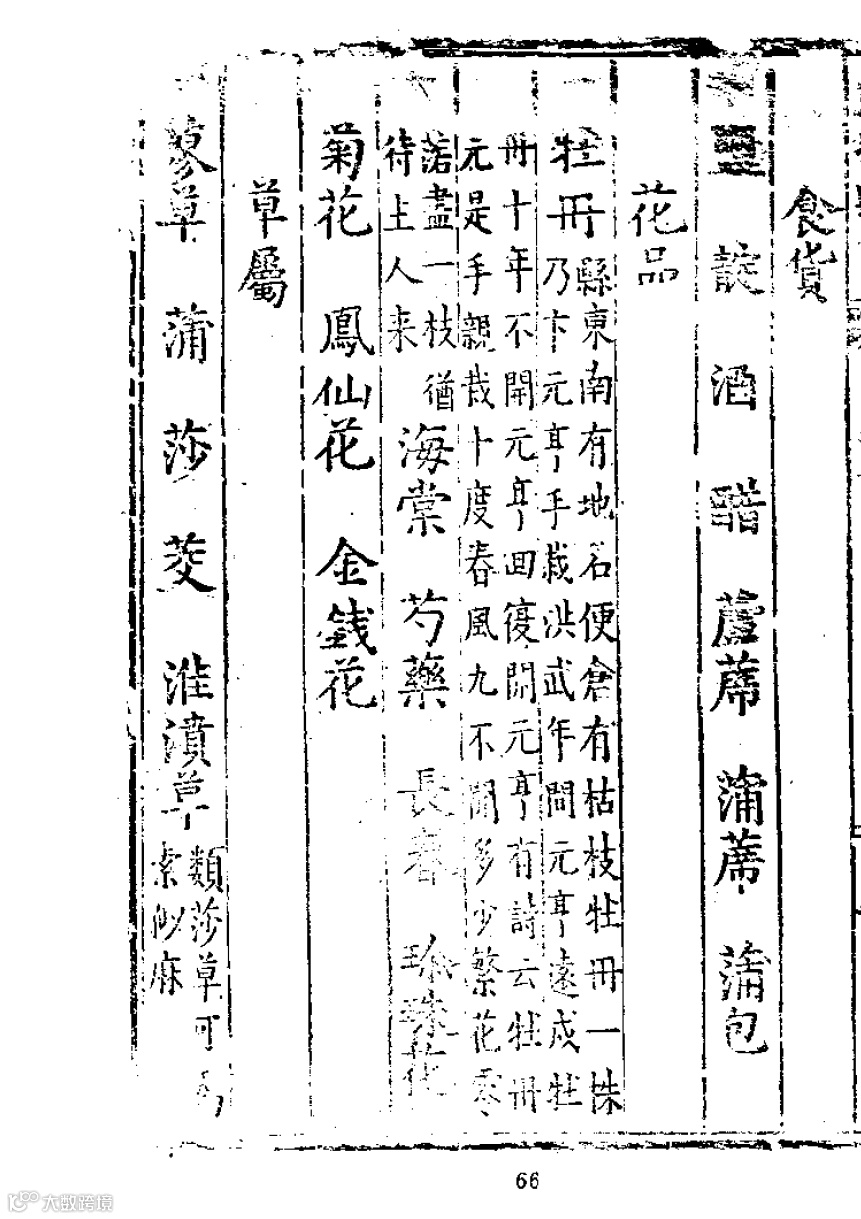 食貨
鹽 靛 酒 醋 蘆蓆 蒲蓆 蒲包
花品
牡丹縣東南有地名便倉有枯枝牡丹一株
乃卞元亨手栽洪武年間元亨遠戍牡
丹十年不開元亨回復開元亨有詩云牡丹
元是手親栽十度春風九不開多少繁花零
落盡一枝猶
待主人来
海棠 芍藥 長春 珍珠花
菊花 鳳仙花 金錢花
草屬
蓼草 蒲 莎 茭 淮濆草類莎草可為
索似麻
66
大数跨境